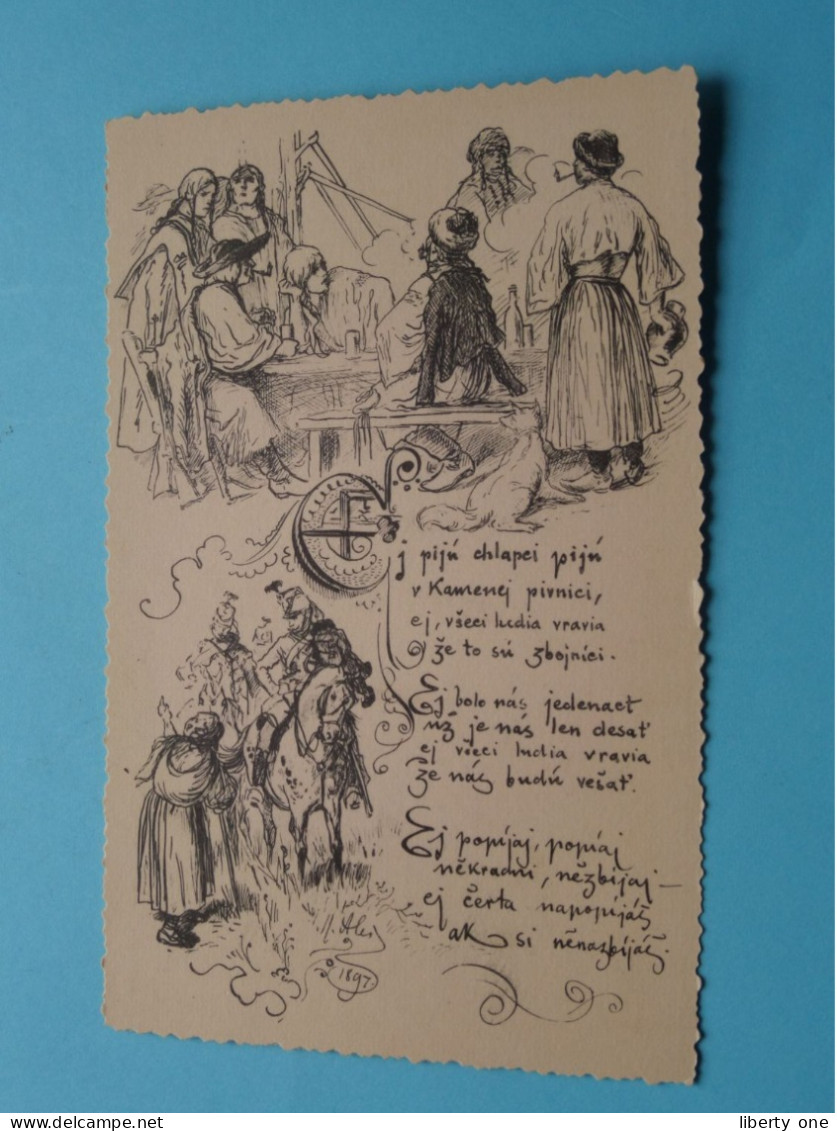 Ej pijú chlapci pijú
v Kamenej pivnici,
ej, všeci ludia vravia
že to sú zbojníci.
Ej bolo nás jedenact
už je nás len desať
ej všeci ludia vravia
že nás budú vešať.
Ej popíjaj, popíaj
někradni, nězbíjaj—
ej čerta napopíjáš
ak si něnazbíjáš.
M. Aleš
1897
liberty one